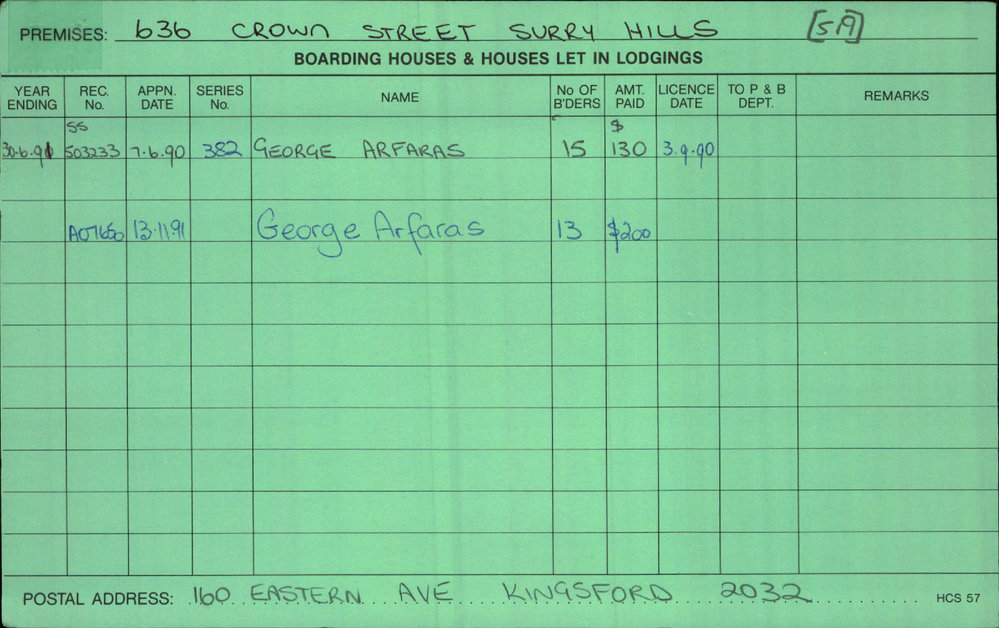 PREMISES: 636 CROWN STREET SURRY HILLS [5A]
BOARDING HOUSES & HOUSES LET IN LODGINGS
YEAR ENDING REC. No. APPN. DATE SERIES No. NAME No OF B'DERS AMT. PAID LICENCE DATE TO P & B DEPT. REMARKS
SS $
30.6.91 503233 7.6.90 382 GEORGE ARFARAS 15 130 3.9.90
A07650 13.11.91 George Arfaras 13 $200
POSTAL ADDRESS: 160 EASTERN AVE KINGSFORD 2032 HCS 57